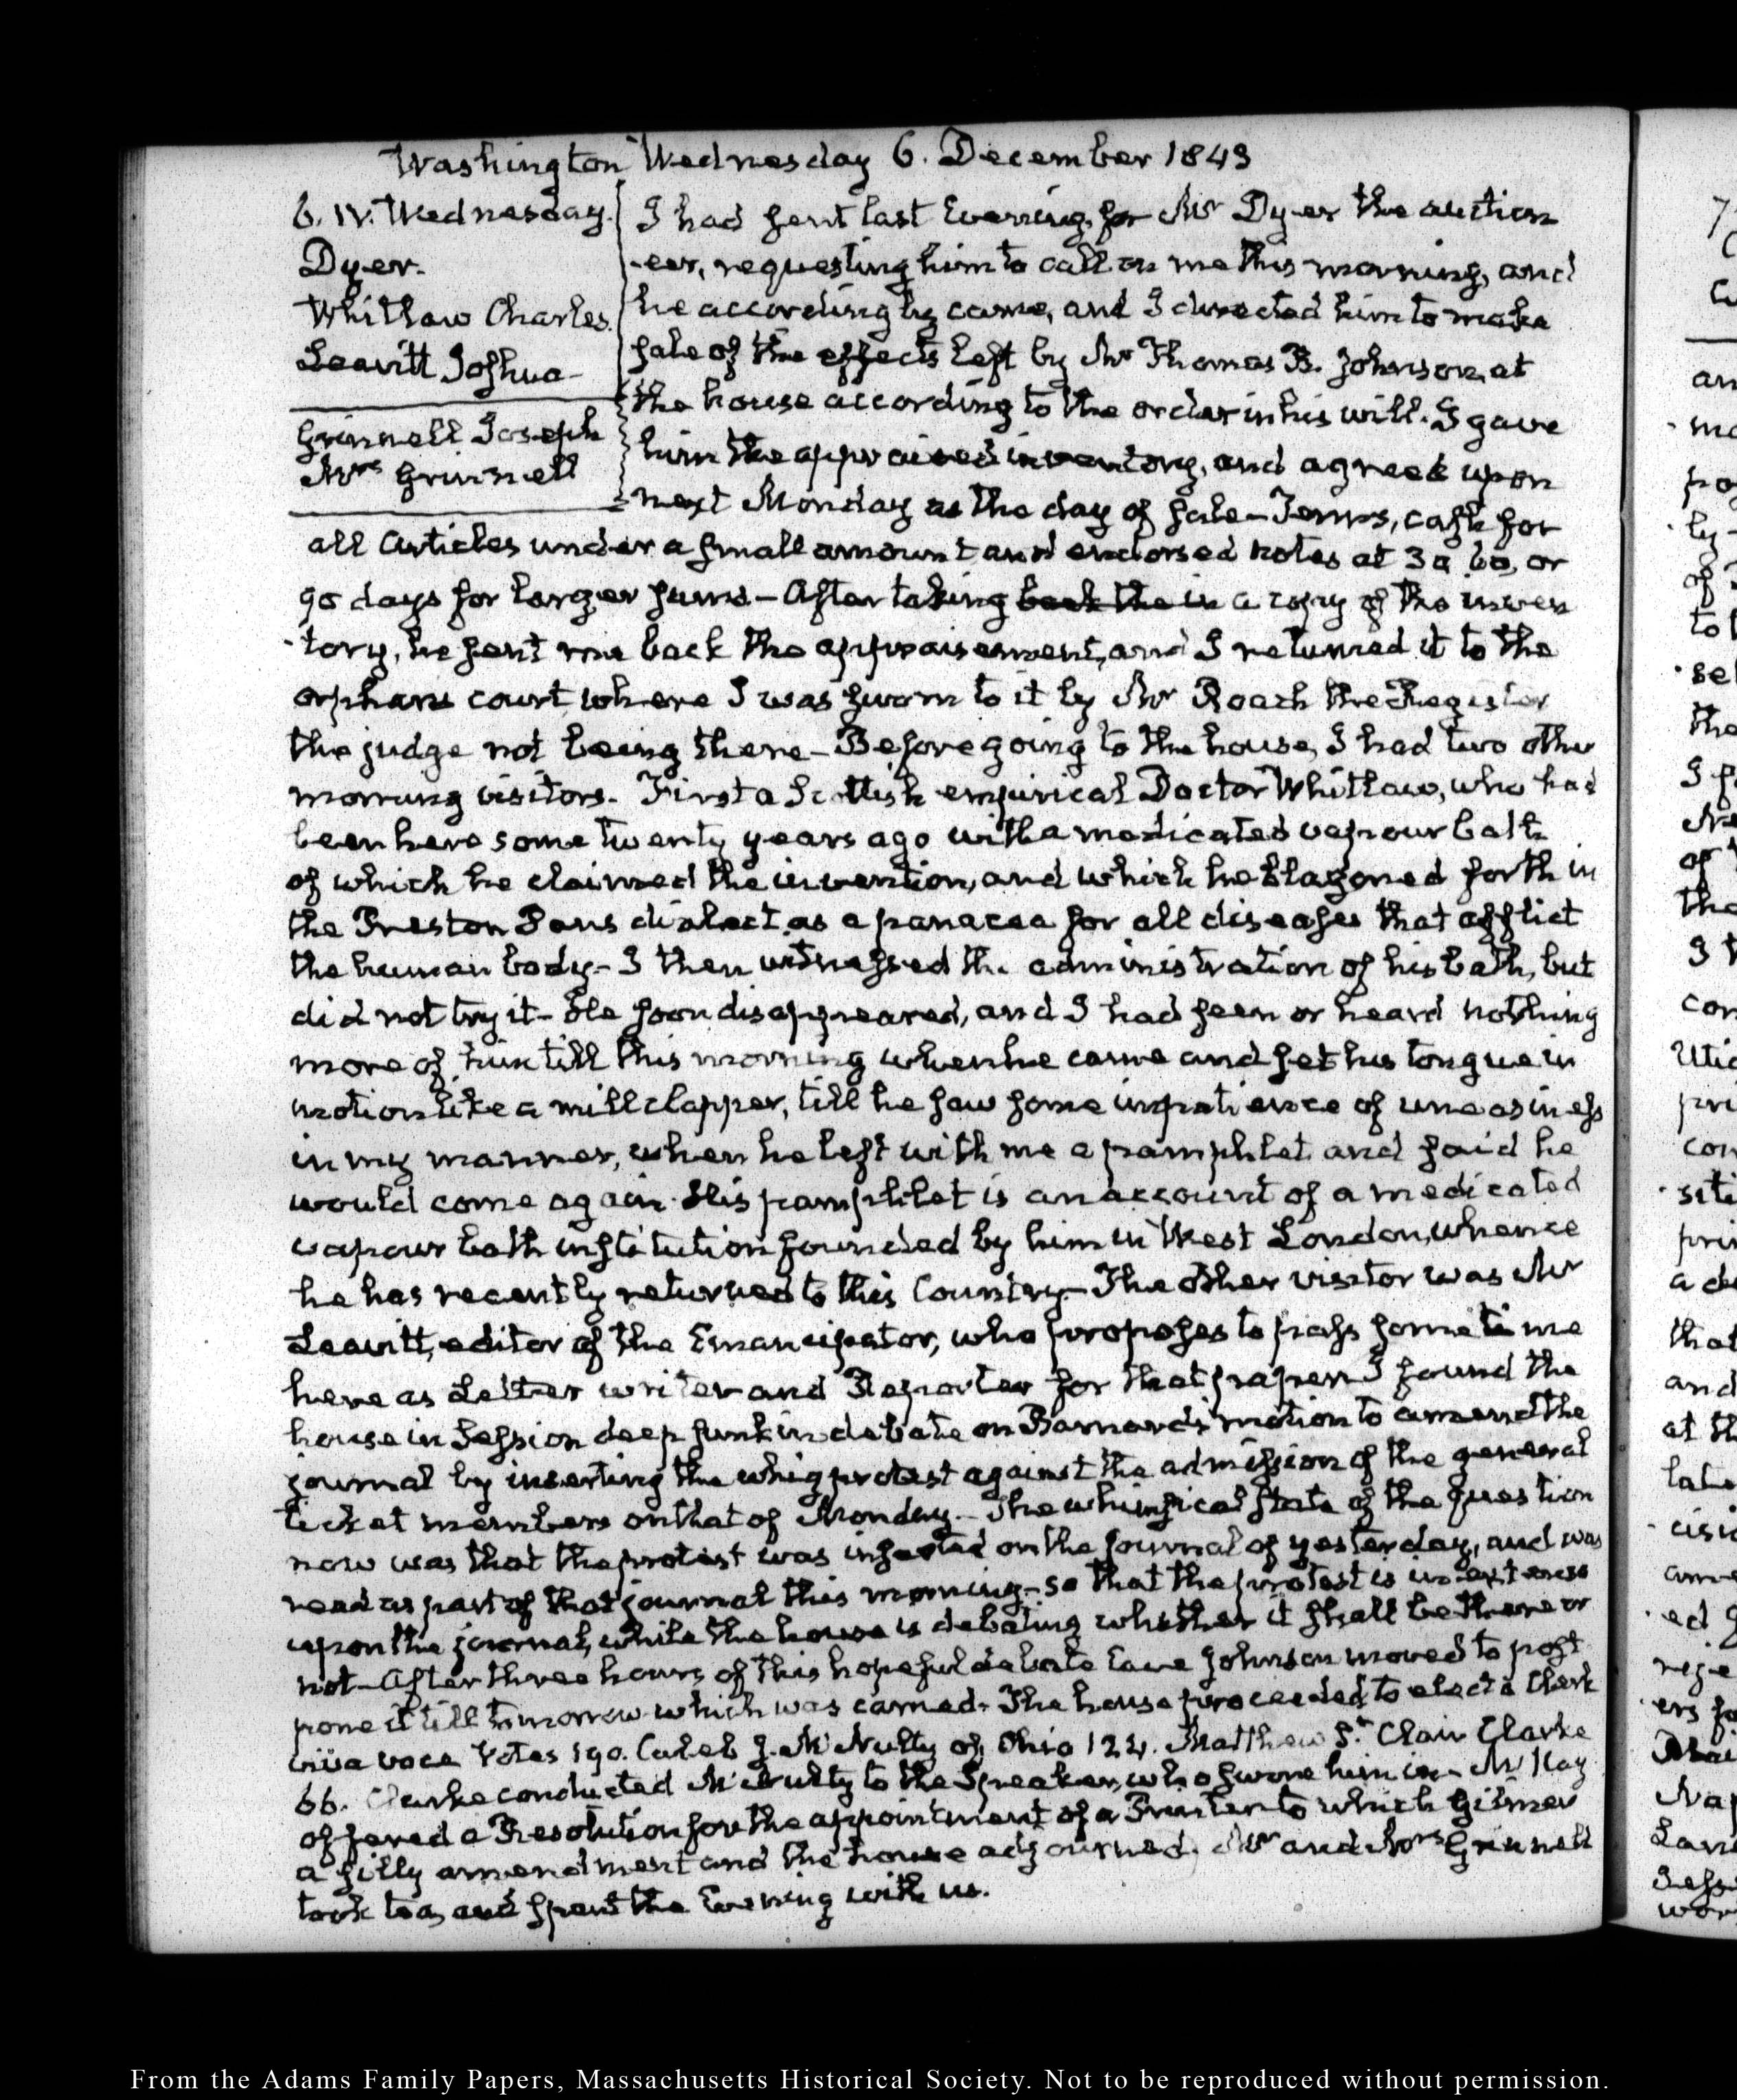 Washington Wednesday 6. December 1843
6. IV. Wednesday.
Dyer.
Whitlaw Charles.
Leavitt Joshua-
Grinnell Joseph
Mrs Grinnell
I had sent last Evening, for Mr Dyer the auction
-eer, requesting him to call on me this morning, and
he accordingly came, and I directed him to make
sale of the effects left by Mr Thomas B. Johnson, at
the house according to the order in his will. I gave
him the appraised inventory, and agreed upon
next Monday as the day of sale- Terms, cash for
all Articles under a small amount and endorsed notes at 30, 60, or
90 days for larger sums.- After taking back the in a copy of the inven
-tory, he sent me back the appraisement, and I returned it to the
orphans court where I was sworn to it by Mr Roach the Register
the judge not being there- Before going to the house, I had two other
morning visitors. First a Scottish empirical Doctor Whitlaw, who had
been here some twenty years ago with a medicated vapour bath
of which he claimed the invention, and which he blazoned forth in
the Preston Pans dialect as a panacea for all diseases that afflict
the human body- I then witnessed the administration of his bath, but
did not try it- He soon disappeared, and I had seen or heard nothing
more of him till this morning when he came and set his tongue in
motion like a mill clapper, till he saw some impatience of uneasiness
in my manner, when he left with me a pamphlet and said he
would come again. His pamphlet is an account of a medicated
vapour bath institution founded by him in West London, whence
he has recently returned to this Country- The other visitor was Mr
Leavitt, editor of the Emancipator, who proposes to pass some time
here as Letter writer and Reporter for that paper. I found the
house in Session deep sunk in debate on Barnard's motion to amend the
journal by inserting the whig protest against the admission of the general
ticket members on that of Monday.- The whimsical state of the question
now was that the protest was inserted on the journal of yesterday, and was
read as part of that journal this morning- so that the protest is in extenso
upon the journal, while the house is debating whether it shall be there or
not- After three hours of this hopeful debate Cave Johnson moved to post
pone it till to-morrow which was carried- The house proceeded to elect a Clerk
viva voce Votes 190. Caleb J. McNulty of Ohio 124. Matthew St. Clair Clarke
66. Clarke conducted McNulty to the Speaker, who swore him in- McKay
offered a Resolution for the appointment of a Printer to which Gilmer
a silly amendment and the house adjourned. Mr and Mrs Grinnell
took tea, and spent the Evening with us.
From the Adams Family Papers, Massachusetts Historical Society. Not to be reproduced without permission.